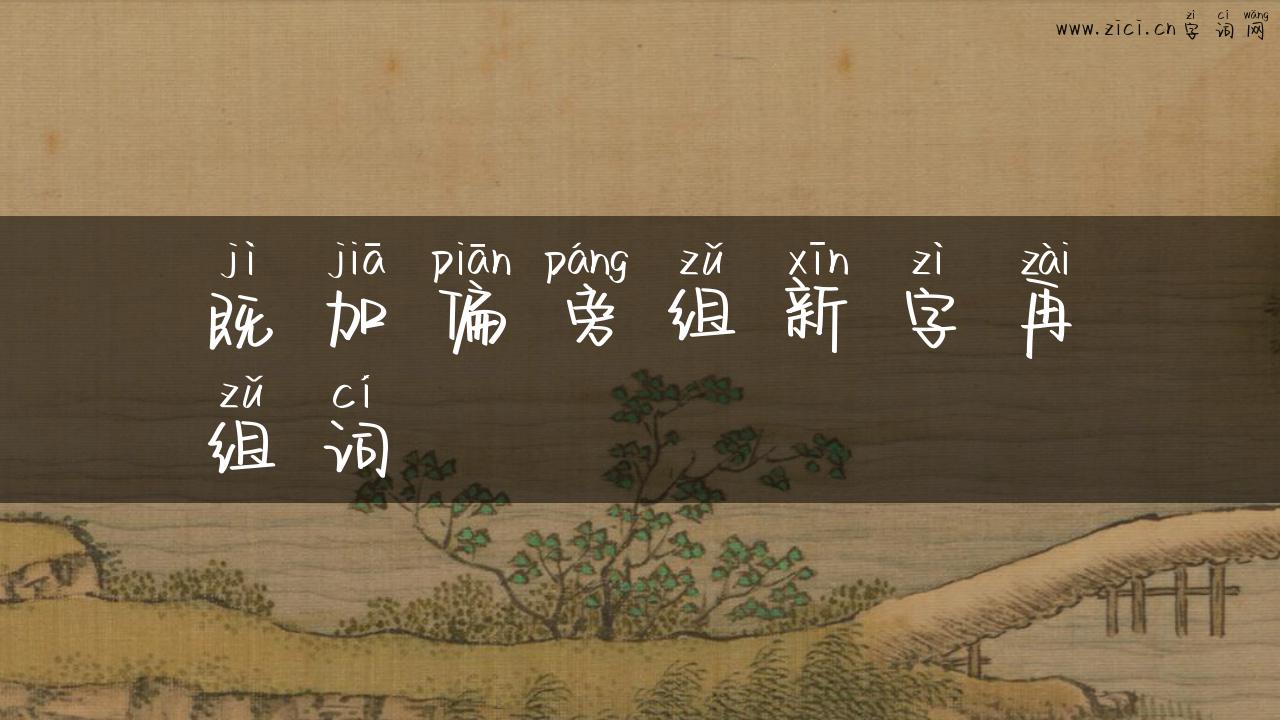 zì cí wǎng
www.zici.cn 字词网
jì jiā piān páng zǔ xīn zì zài
既加偏旁组新字再
zǔ cí
组词